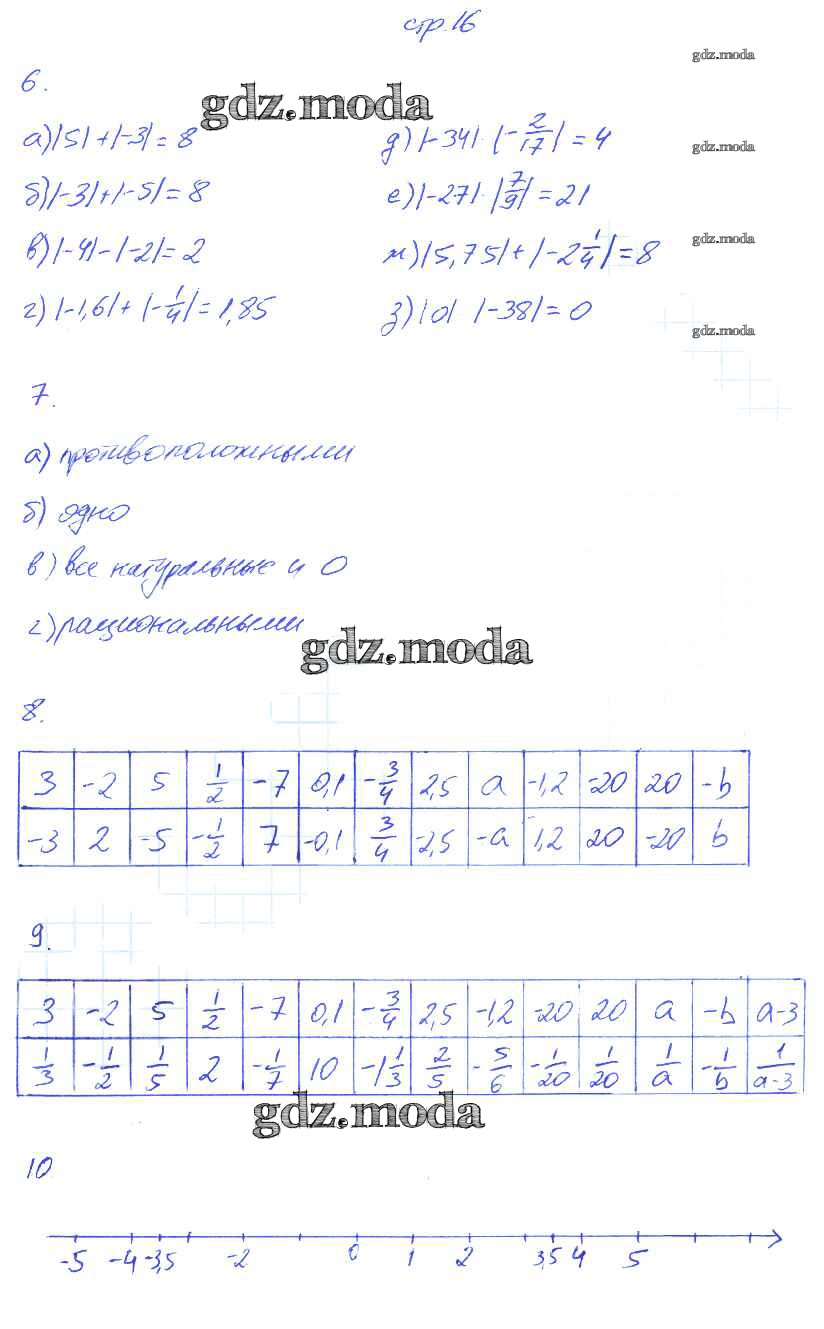 стр. 16
gdz.moda
6.
gdz.moda
а) |5| + |-3| = 8
д) |-34| · |-2/17| = 4
gdz.moda
б) |-3| + |-5| = 8
е) |-27| · |7/9| = 21
в) |-4| - |-2| = 2
ж) |5,75| + |-2 1/4| = 8
gdz.moda
г) |-1,6| + |-1/4| = 1,85
з) |0| |-38| = 0
gdz.moda
7.
а) противоположными
б) одно
в) все натуральные и 0
г) рациональными
gdz.moda
8.
3 -2 5 1/2 -7 0,1 -3/4 2,5 a -1,2 -20 20 -b
-3 2 -5 -1/2 7 -0,1 3/4 -2,5 -a 1,2 20 -20 b
9.
3 -2 5 1/2 -7 0,1 -3/4 2,5 -1,2 -20 20 a -b a-3
1/3 -1/2 1/5 2 -1/7 10 -1 1/3 2/5 -5/6 -1/20 1/20 1/a -1/b 1/(a-3)
gdz.moda
10
-5 -4 -3,5 -2 0 1 2 3,5 4 5